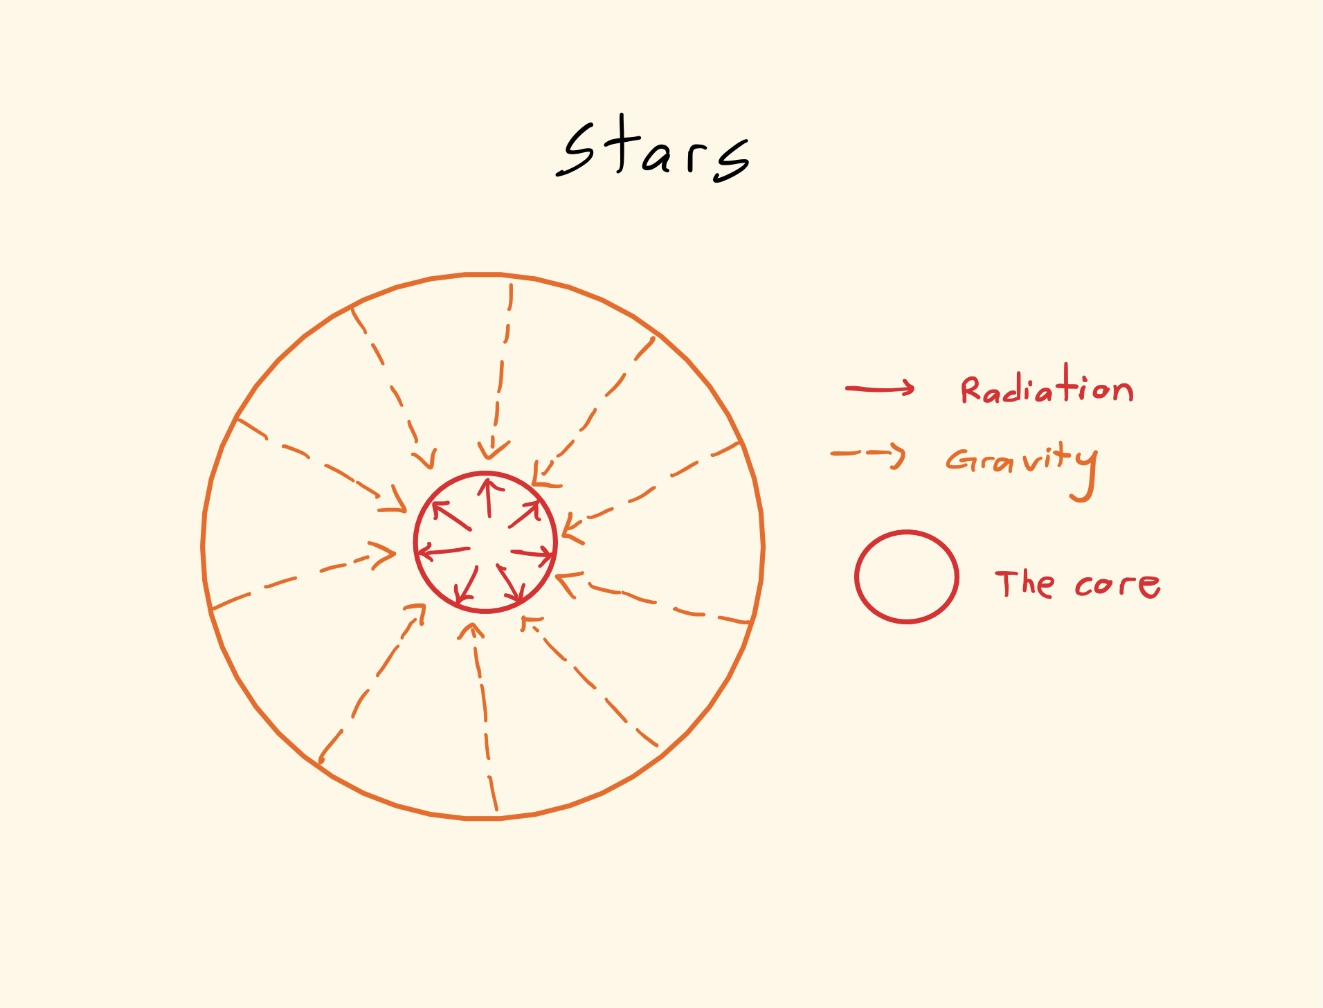 Stars
Radiation
Gravity
The core